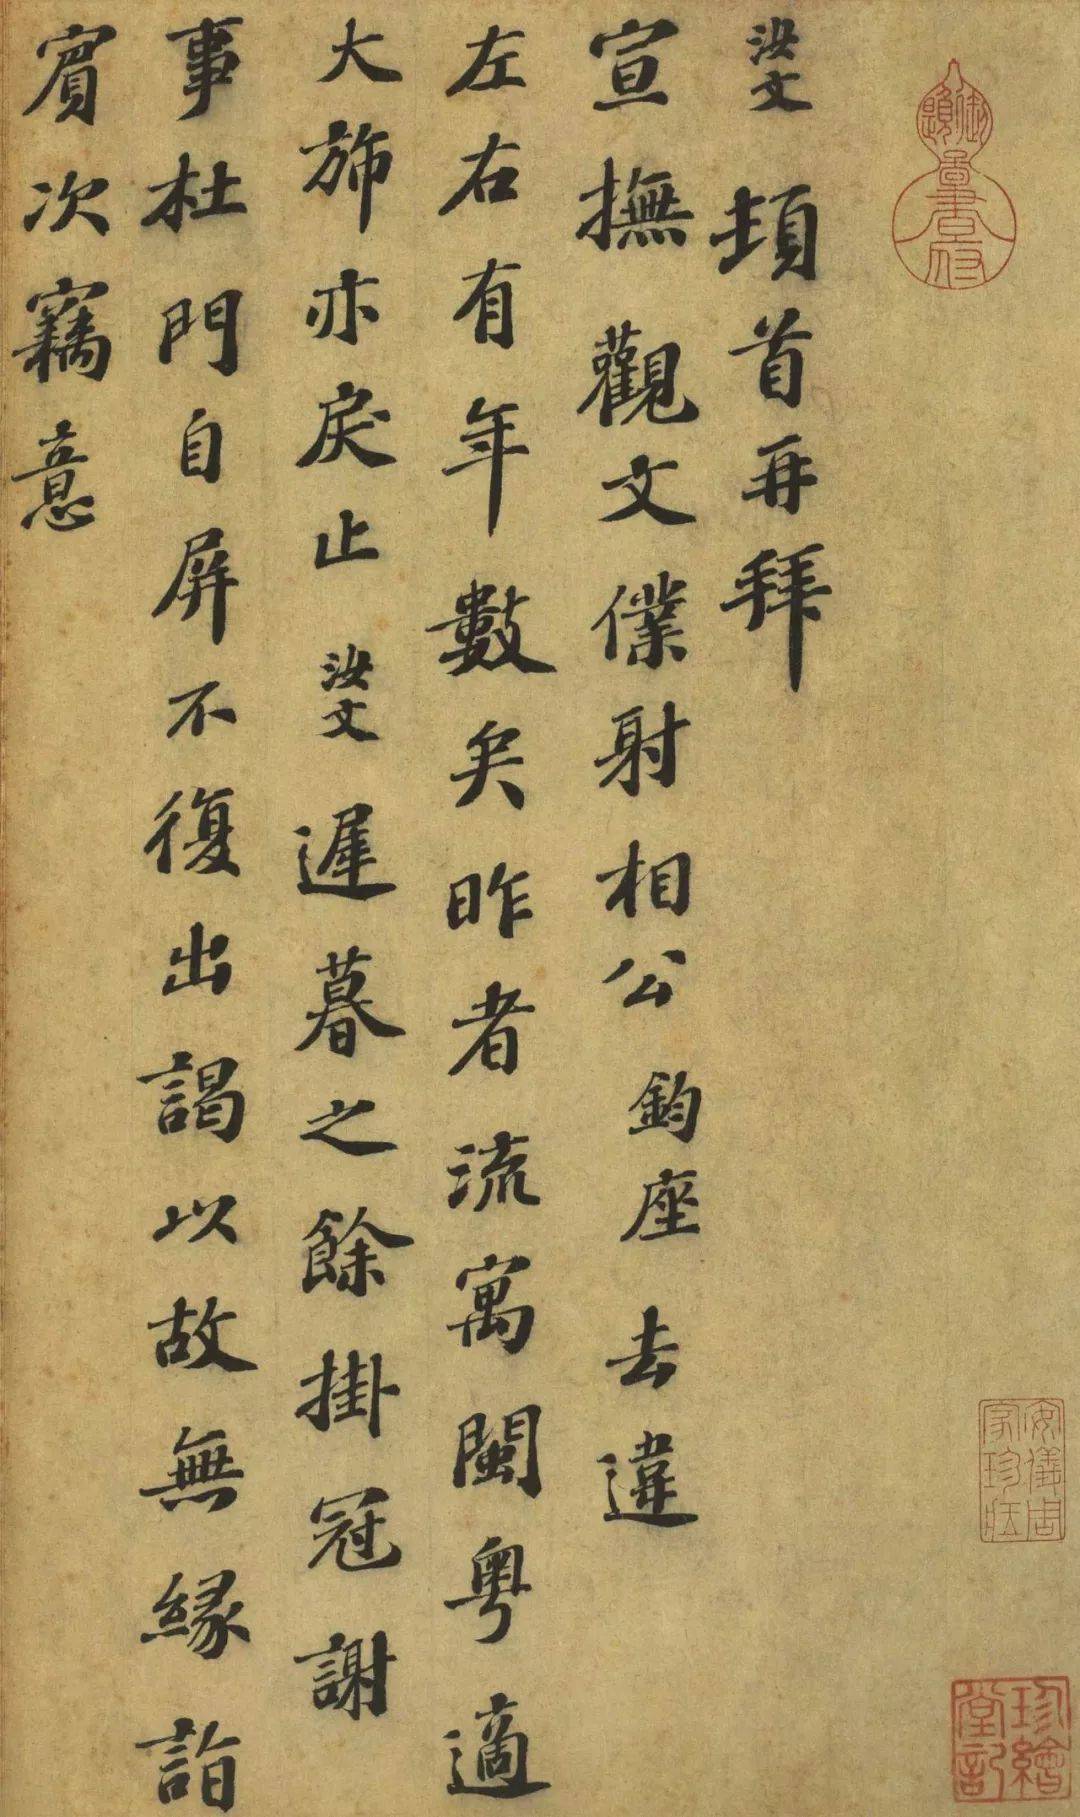 汝文頓首再拜
宣撫觀文僕射相公鈞座去違
左右有年數矣昨者流寓閩粵適
大斾亦戾止汝文遲暮之餘掛冠謝
事杜門自屏不復出謁以故無緣詣
賓次竊意
御題圖書府
安儀周家珍藏
珍繪堂記